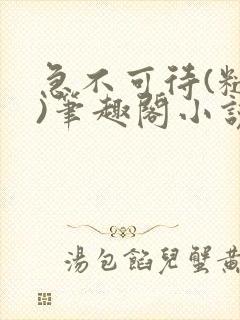 急不可待(
)筆趣閣小說
湯包餡兒蟹黃